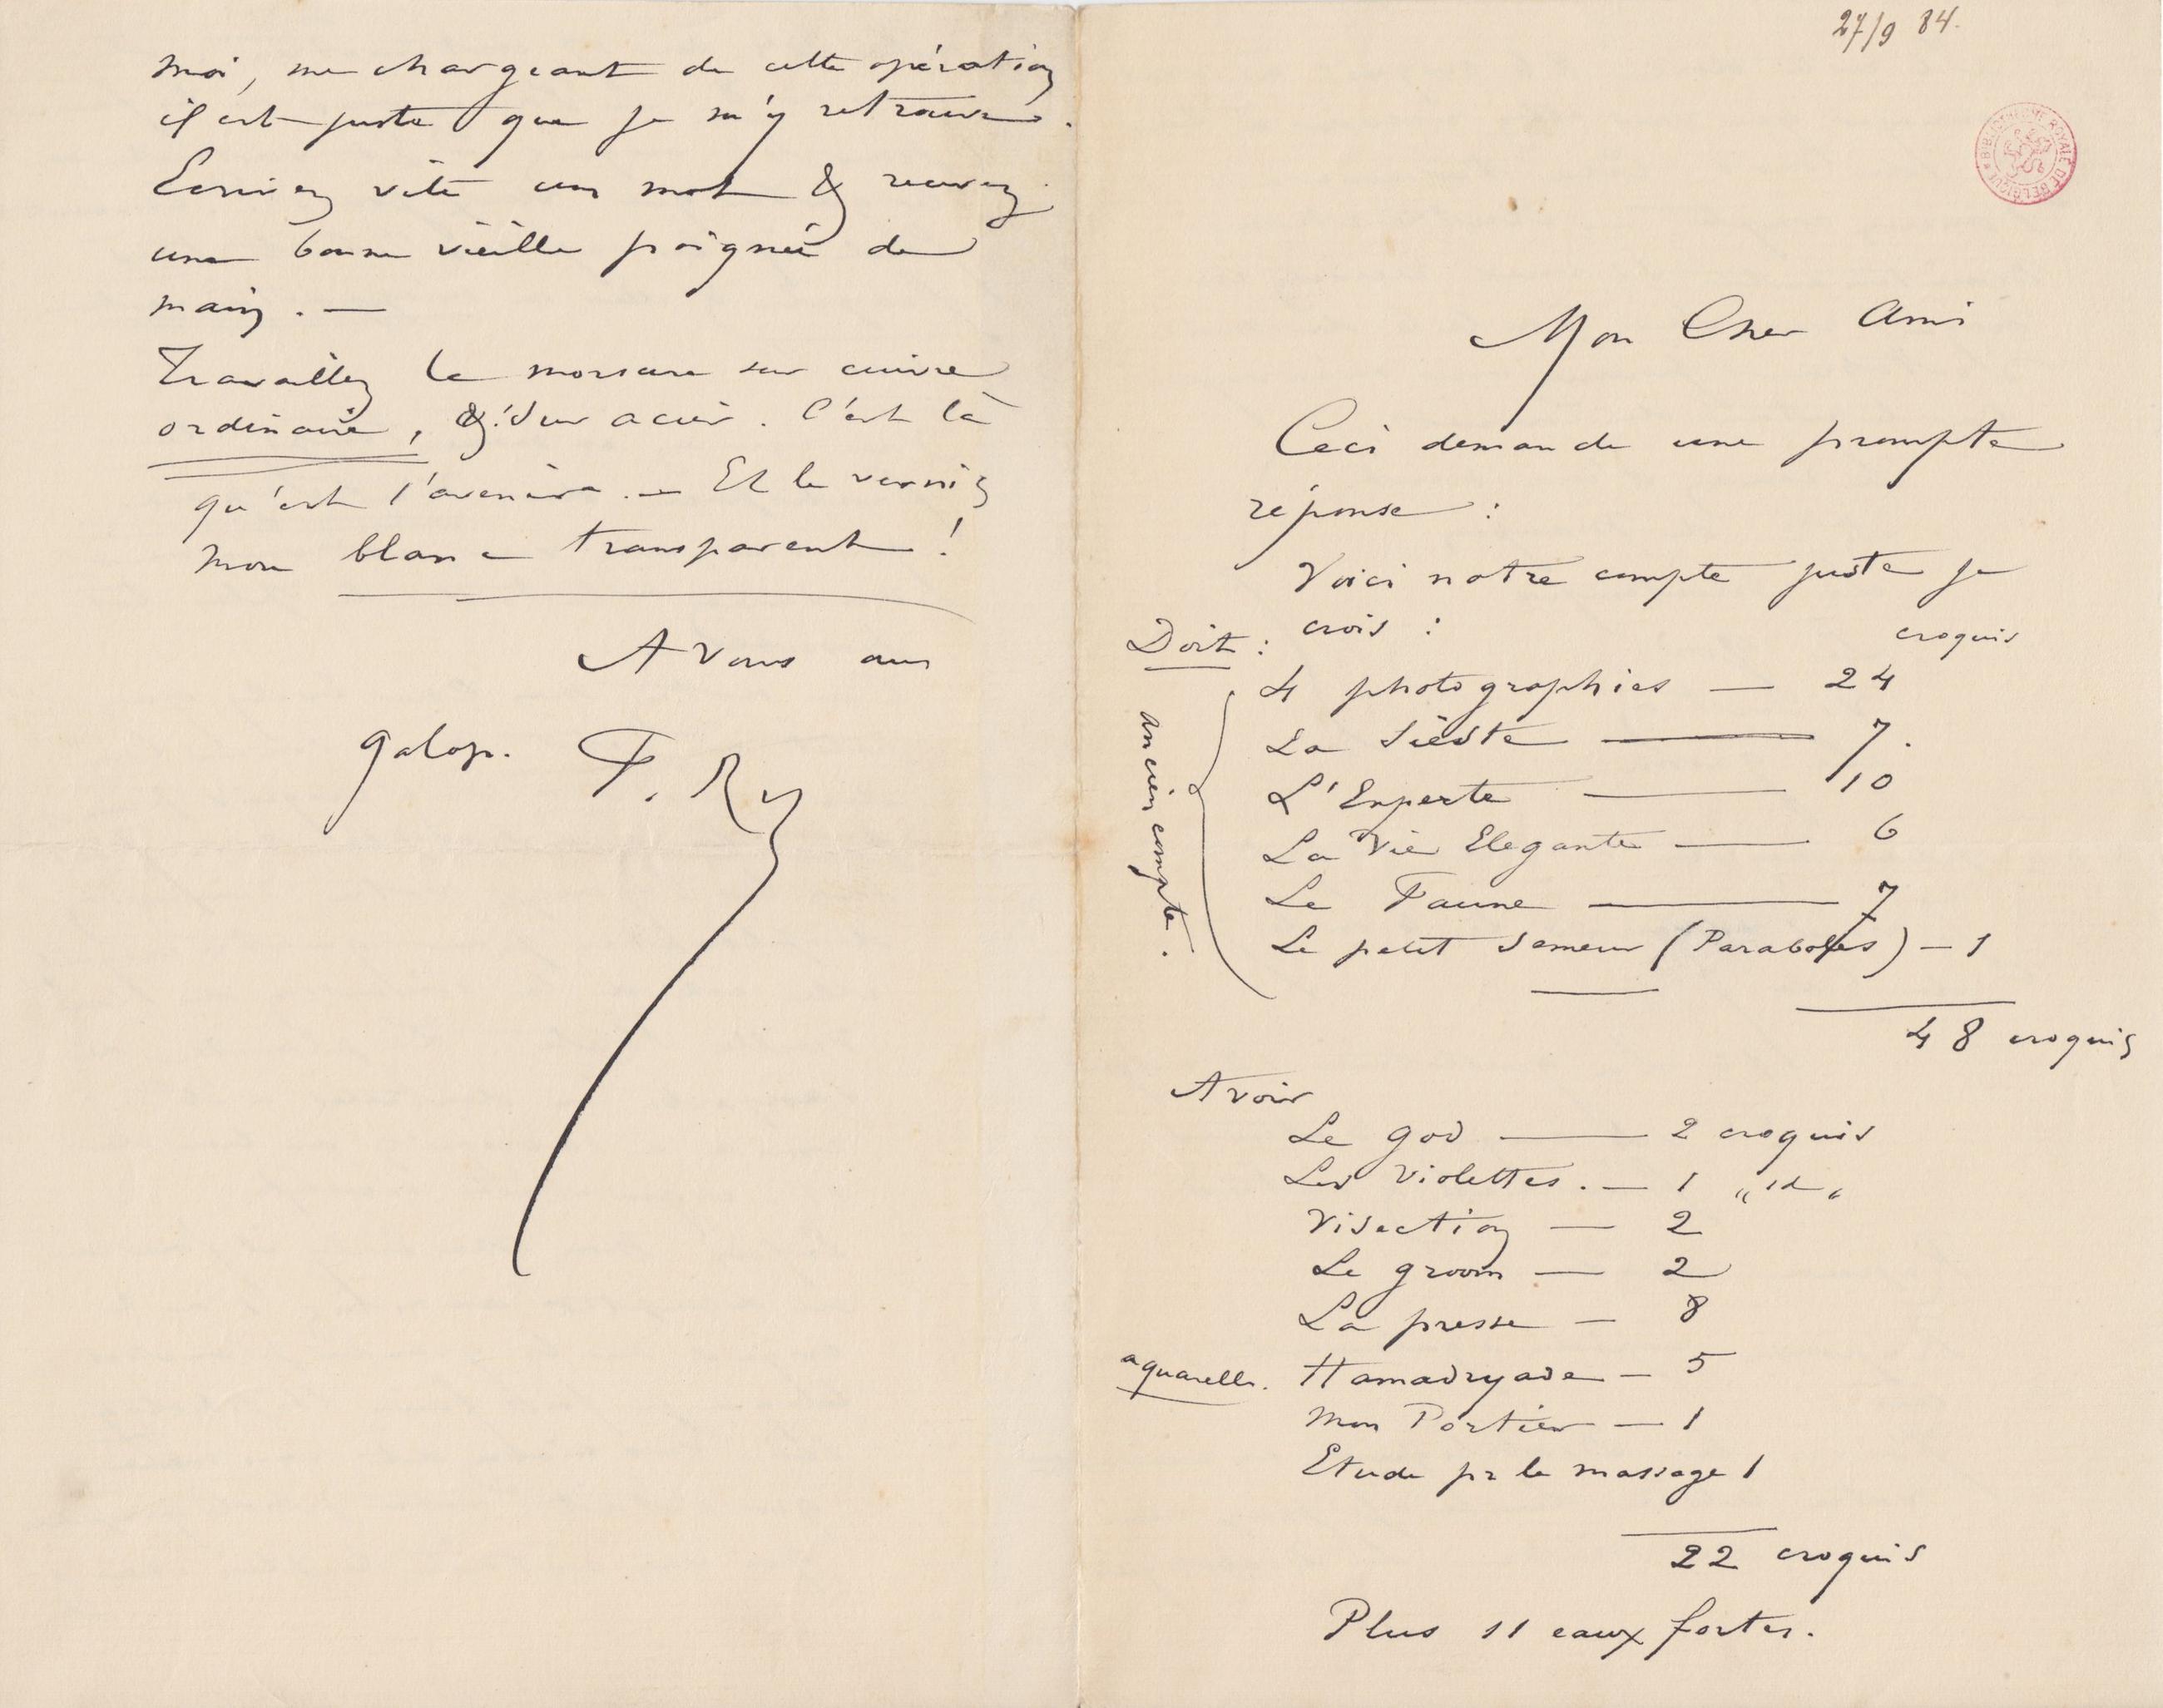 27/9 84.
BIBLIOTHEQUE ROYALE DE BELGIQUE
Mon Cher Ami
Ceci demande une prompte
réponse :
Voici notre compte juste je
crois :
Doit :
croquis
ancien compte.
4 photographies — 24
La Siéste — 7.
L'Experte — 10
La Vie Elegante — 6
Le Faune — 7
Le petit Semeur (Paraboles) — 1
48 croquis
Avoir
Le god — 2 croquis
Les Violettes. — 1 " id "
Visection — 2
Le groom — 2
La presse — 8
aquarelle. Hamadryade — 5
Mon Portier — 1
Etude pr le massage 1
22 croquis
Plus 11 eaux fortes.
moi, me chargeant de cette opération
il est juste que je m'y retrouve.
Ecrivez vite un mot & recevez
une bonne vieille poignée de
main. —
Travaillez la morsure sur cuivre
ordinaire, & sur acier. C'est là
qu'est l'avenir. — Et le vernis
mou blanc transparent !
A vous
galop. F. R